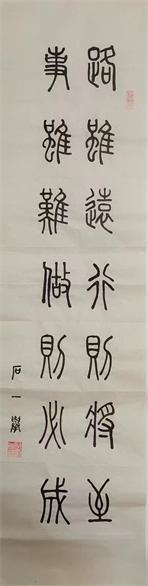 路雖遠行則將至
事雖難做則必成
石一